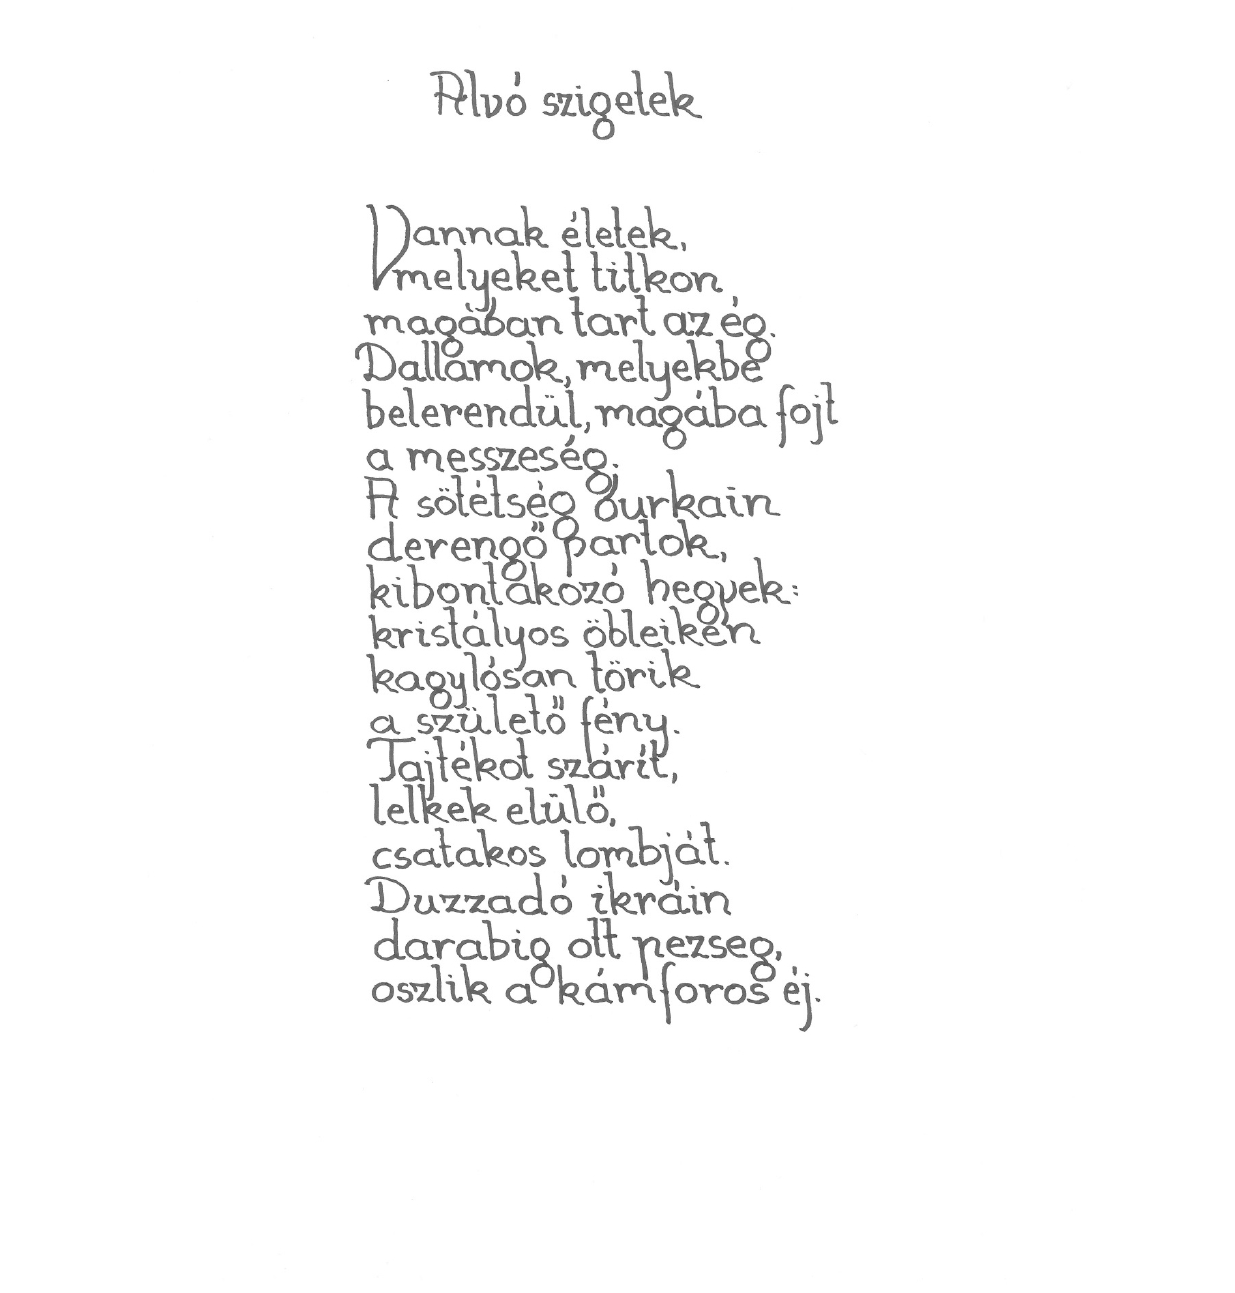 Alvó szigetek
Vannak életek,
melyeket titkon
magában tart az ég.
Dallamok, melyekbe
belerendül, magába fojt
a messzeség.
A sötétség burkain
derengő partok,
kibontakozó hegyek:
kristályos öbleiken
kagylósan törik
a születő fény.
Tajtékot szárít,
lelkek elülő,
csatakos lombját.
Duzzadó ikráin
darabig ott pezseg,
oszlik a kámforos éj.